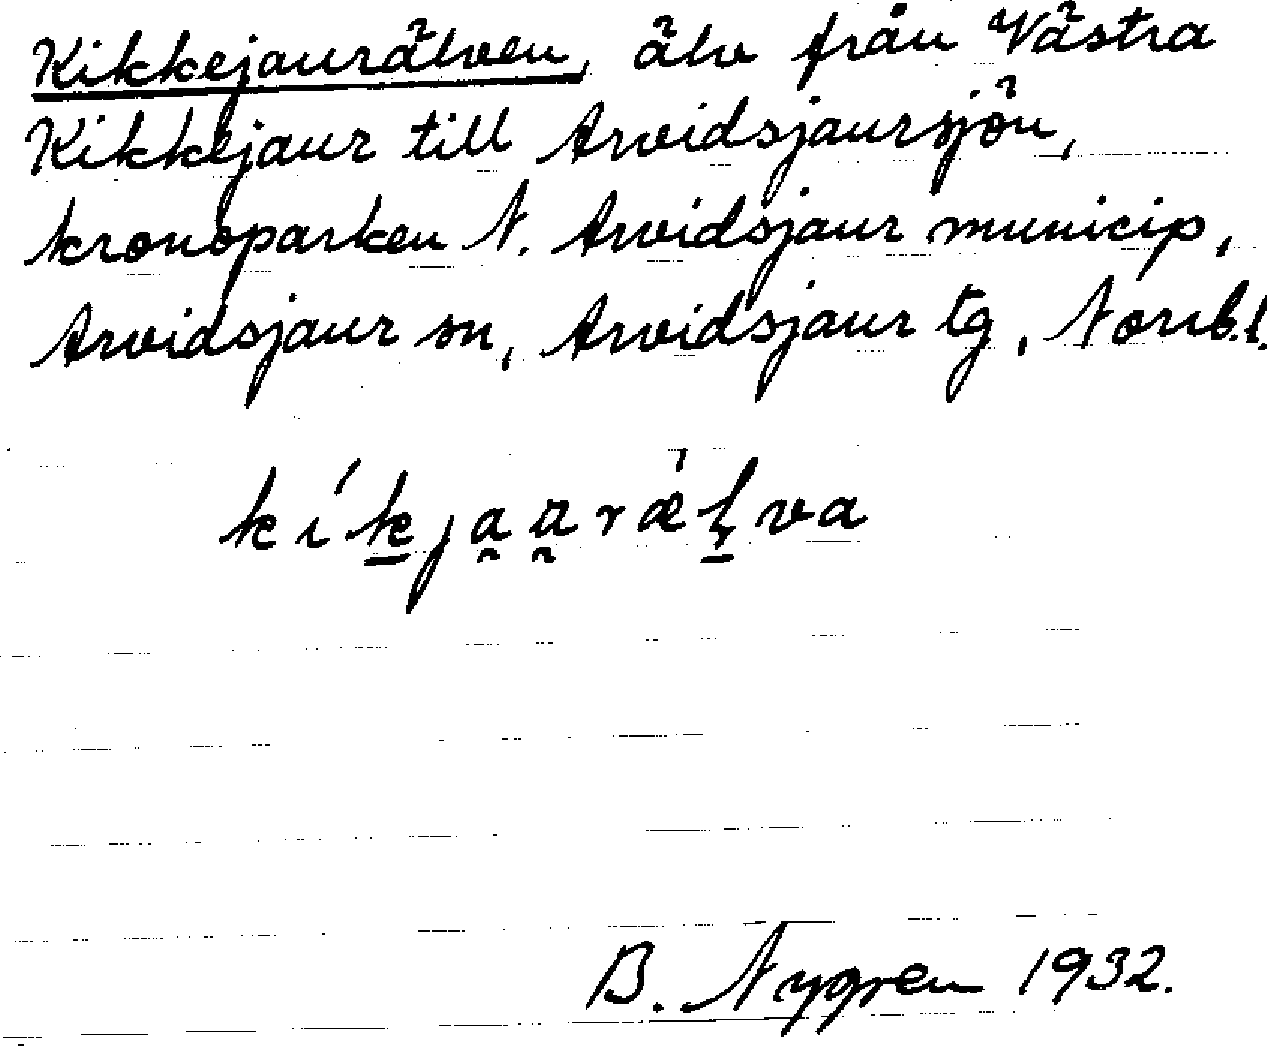 Kikkejaurälven, älv från Västra
Kikkejaur till Arvidsjaursjön,
kronoparken N. Arvidsjaur municip,
Arvidsjaur sn, Arvidsjaur tg, Norrb.l.
kíḵja̰a̰ræ̀ḻva
B. Nygren 1932.